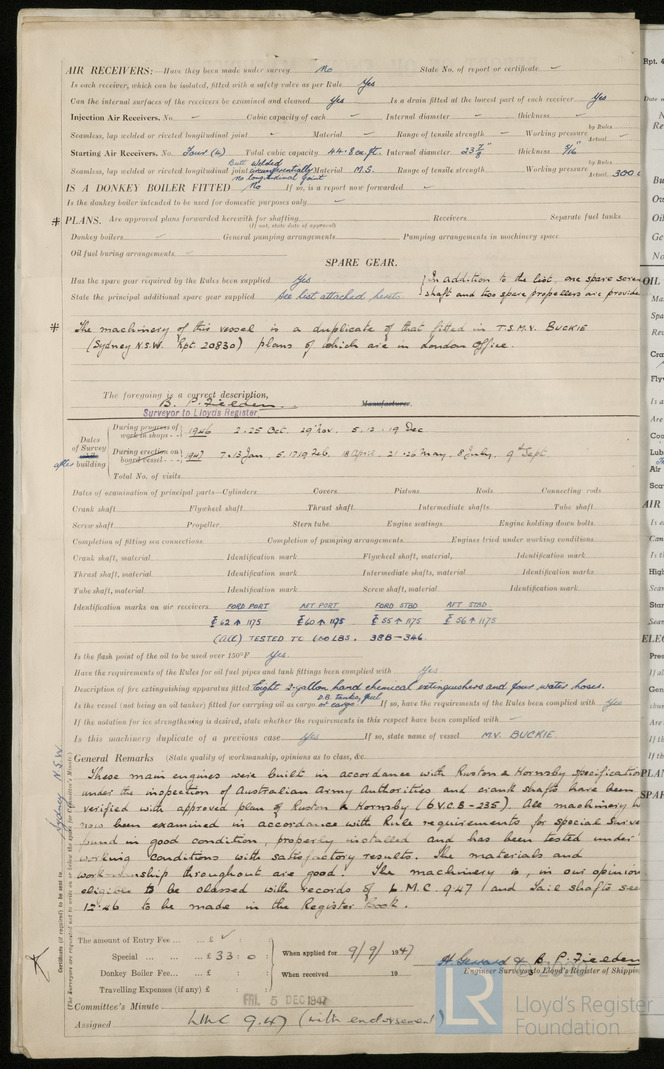 AIR RECEIVERS:—Have they been made under survey No State No. of report or certificate –
Is each receiver, which can be isolated, fitted with a safety valve as per Rule Yes
Can the internal surfaces of the receivers be examined and cleaned Yes Is a drain fitted at the lowest part of each receiver Yes
Injection Air Receivers. No. – Cubic capacity of each – Internal diameter – thickness –
Seamless, lap welded or riveted longitudinal joint – Material – Range of tensile strength – Working pressure by Rules Actual –
Starting Air Receivers. No. Four (4) Total cubic capacity 44.8 cu. ft. Internal diameter 23 7/8" thickness 5/16"
Seamless, lap welded or riveted longitudinal joint Butt welded circumferentially No longitudinal joint Material M.S. Range of tensile strength – Working pressure by Rules Actual 300
IS A DONKEY BOILER FITTED No If so, is a report now forwarded –
Is the donkey boiler intended to be used for domestic purposes only –
* PLANS. Are approved plans forwarded herewith for shafting Receivers Separate fuel tanks
(If not, state date of approval)
Donkey boilers General pumping arrangements Pumping arrangements in machinery space
Oil fuel burning arrangements
SPARE GEAR.
Has the spare gear required by the Rules been supplied Yes } In addition to the list, one spare screw
State the principal additional spare gear supplied See list attached hereto. } shaft and two spare propellers are provide
* The machinery of this vessel is a duplicate of that fitted in T.S.M.V. BUCKIE
(Sydney N.S.W. Rpt. 20830) plans of which are in London Office.
The foregoing is a correct description,
B. P. Fielden. Manufacturer.
Surveyor to Lloyd's Register
Dates of Survey after building
During progress of work in shops - - 1946 2.25 Oct. 29 Nov. 5.12.19 Dec
During erection on board vessel - - - 1947 7.13 Jan, 5.17.19 Feb. 18 April. 21.26 May, 8 July, 9th Sept.
Total No. of visits
Dates of examination of principal parts—Cylinders Covers Pistons Rods Connecting rods
Crank shaft Flywheel shaft Thrust shaft Intermediate shafts Tube shaft
Screw shaft Propeller Stern tube Engine seatings Engine holding down bolts
Completion of fitting sea connections Completion of pumping arrangements Engines tried under working conditions
Crank shaft, material Identification mark Flywheel shaft, material, Identification mark
Thrust shaft, material Identification mark Intermediate shafts, material Identification marks
Tube shaft, material Identification mark Screw shaft, material Identification mark
Identification marks on air receivers FORD PORT AFT PORT FORD STBD AFT STBD
62 ↑ 1175 60 ↑ 1175 55 ↑ 1175 56 ↑ 1175
(ALL) TESTED TO 600 LBS. 38B–346.
Is the flash point of the oil to be used over 150°F Yes.
Have the requirements of the Rules for oil fuel pipes and tank fittings been complied with Yes
Description of fire extinguishing apparatus fitted Eight 2-gallon hand chemical extinguishers and four water hoses.
Is the vessel (not being an oil tanker) fitted for carrying oil as cargo D.B. tanks, fuel or cargo. If so, have the requirements of the Rules been complied with Yes
If the notation for ice strengthening is desired, state whether the requirements in this respect have been complied with –
Is this machinery duplicate of a previous case Yes If so, state name of vessel M.V. BUCKIE
General Remarks (State quality of workmanship, opinions as to class, &c.
These main engines were built in accordance with Ruston & Hornsby specification
under the inspection of Australian Army Authorities and crank shafts have been
verified with approved plan of Ruston & Hornsby (6.V.C.B-235). All machinery h
now been examined in accordance with Rule requirements for Special Surve
found in good condition, properly installed and has been tested under
working conditions with satisfactory results. The materials and
workmanship throughout are good. The machinery is, in our opinion
eligible to be classed with records of L.M.C. 9.47 and Tail shafts see
12.46 to be made in the Register Book.
Sydney N.S.W.
Certificate (if required) to be sent to
(The Surveyors are requested not to write on or below the space for Committee's Minute.)
The amount of Entry Fee ... £
Special ... ... £ 33 : 0 :
Donkey Boiler Fee... £ : :
Travelling Expenses (if any) £ : :
When applied for 9/9/ 1947
When received 19
B. P. Fielden
Engineer Surveyor to Lloyd's Register of Shippin
Committee's Minute FRI. 5 DEC 1947
Assigned LMC 9.47 (with endorsement)
LR
Lloyd's Register
Foundation